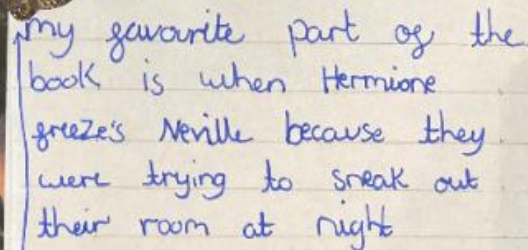 my favourite part of the
book is when Hermione
freeze's Neville because they
were trying to sneak out
their room at night